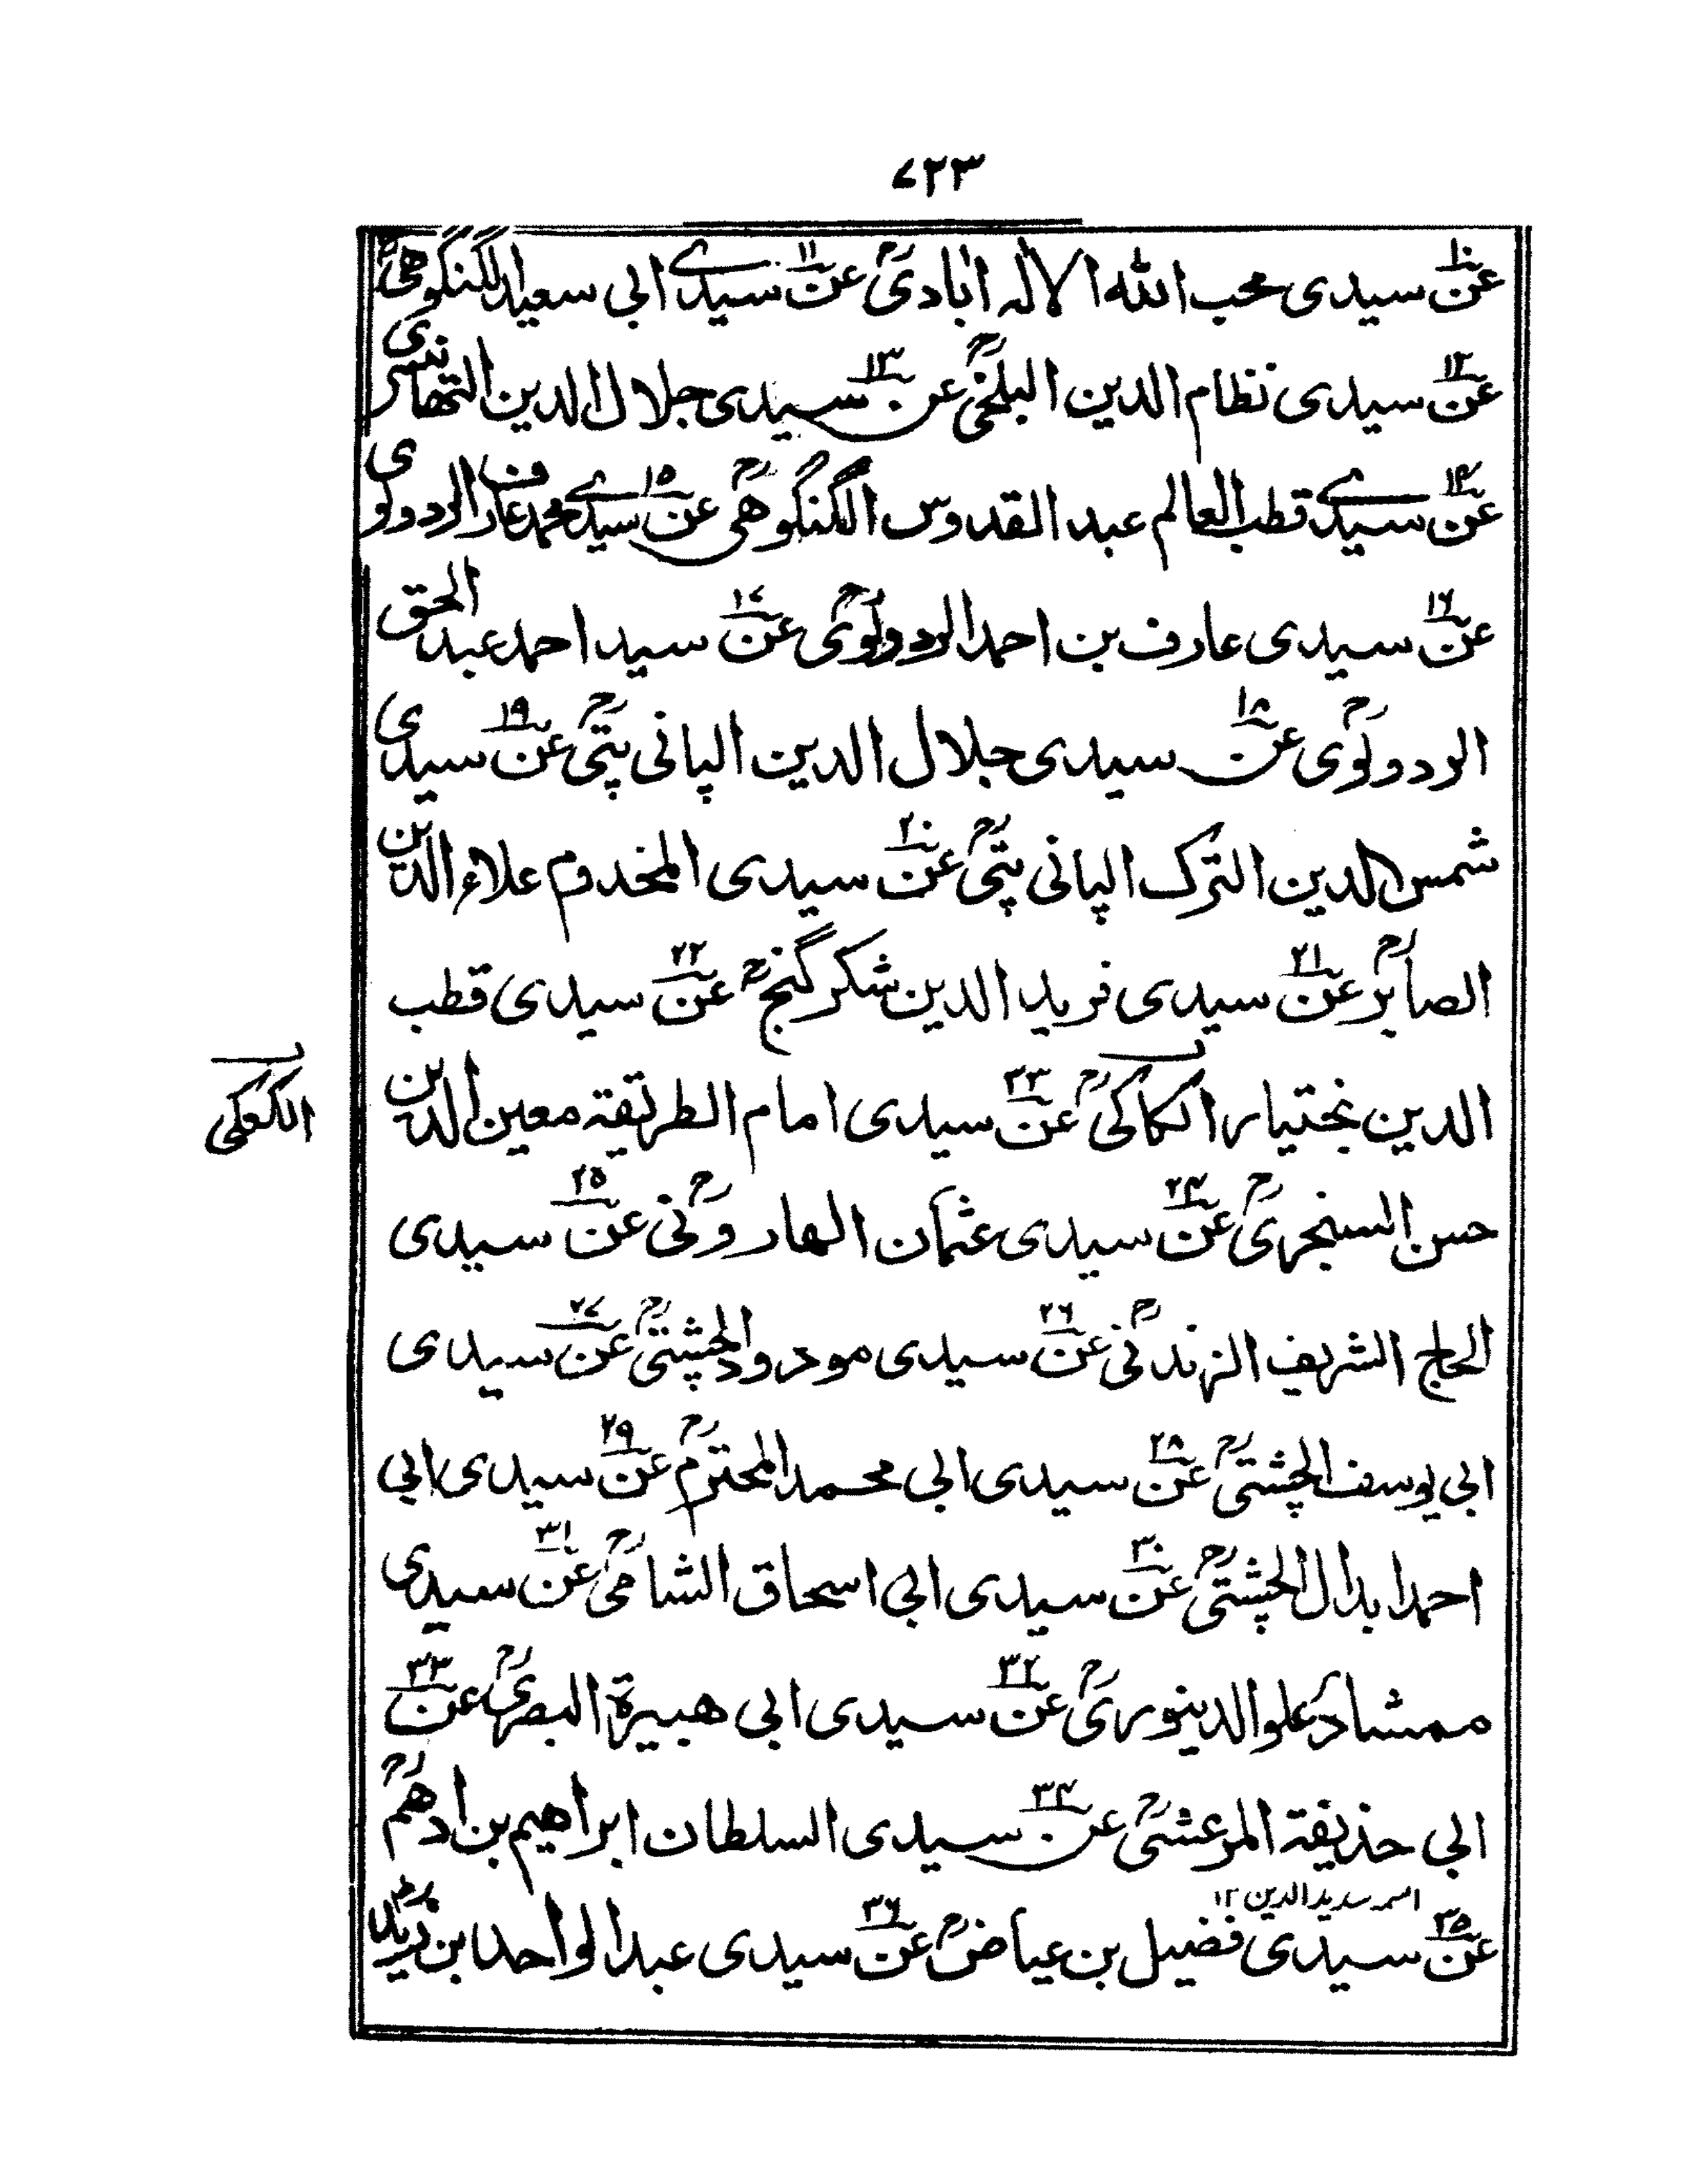 ۷۲۳
عن۱۰ سیدی محب الله الالہ اٰبادیؒ عن۱۱ سیدے ابی سعید الگنگوهیؒ
عن۱۲ سیدی نظام الدین البلخیؒ عن۱۳ سیدی جلال الدین التھانیسری
عن۱۴ سیدے قطب العالم عبد القدوس الگنگوهیؒ عن۱۵ سیدے محمد عارف الردولوی
عن۱۶ سیدی عارف بن احمد الردولویؒ عن۱۷ سید احمد عبد الحق
الردولویؒ عن۱۸ سیدی جلال الدین الپانی پتیؒ عن۱۹ سیدی
شمس الدین الترک الپانی پتیؒ عن۲۰ سیدی المخدوم علاء الدین
الصابرؒ عن۲۱ سیدی فرید الدین شکر گنجؒ عن۲۲ سیدی قطب
الدین بختیار الکاکیؒ عن۲۳ سیدی امام الطریقة معین الدین
الکعکی
حسن السنجریؒ عن۲۴ سیدی عثمان الهارونیؒ عن۲۵ سیدی
الحاج الشریف الزندنیؒ عن۲۶ سیدی مودود الچشتیؒ عن۲۷ سیدی
ابی یوسف الچشتیؒ عن۲۸ سیدی ابی محمد المحترمؒ عن۲۹ سیدی ابی
احمد ابدال الچشتیؒ عن۳۰ سیدی ابی اسحاق الشامیؒ عن۳۱ سیدی
ممشاد علو الدینوریؒ عن۳۲ سیدی ابی هبیرة البصریؒ عن۳۳
ابی حذیفة المرعشیؒ عن۳۴ سیدی السلطان ابراهیم بن ادهمؒ
اسمہ سدید الدین ۱۲
عن۳۵ سیدی فضیل بن عیاضؒ عن۳۶ سیدی عبد الواحد بن زیدؒ